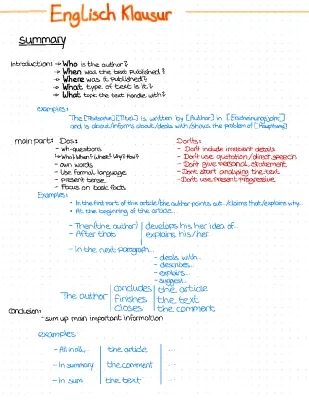 Englisch Klausur
summary
introduction: → Who is the author?
→ When was the text published?
→ Where was it published?
→ What type of text is it?
→ What type the text handle with?
examples:
The [Textsorte] [Titel] is written by [Author] in [Erscheinungsjahr]
and is about/informs about/deals with/shows the problem of [Hauptthema]
main part: Dos:
- wh-questions
↳ Who? When? What? Why? How?
- own words
- Use formal language
- present tense
- Focus on basic facts
Don'ts:
- Don't include irrelevant details
- Don't use quotation/direct speech
- Don't give personal statement
- Don't start analysing the text
- Don't use present progressive
Examples:
• In the first part of the article/the author points out../claims that/explains why...
• At the beginning of the article...
- Then (the author) | develops his/her idea of...
- After that | explains his/her
- in the next paragraph...
- deals with..
- describes..
- explains..
- suggest..
The author | concludes | the article
finishes | the text
closes | the comment
Conclusion:
- sum up main important information
examples:
- All in all,.. | the article | ...
- In summary | the comment | ...
- In sum | the text | ...